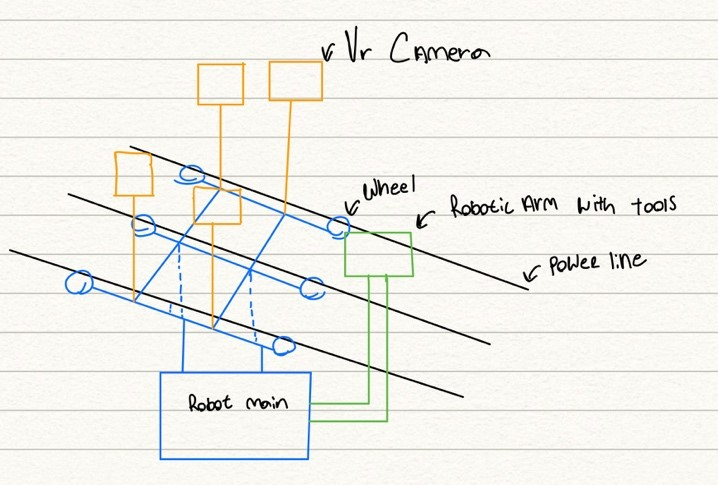 Vr Camera
Wheel
Robotic Arm with tools
Power line
Robot main